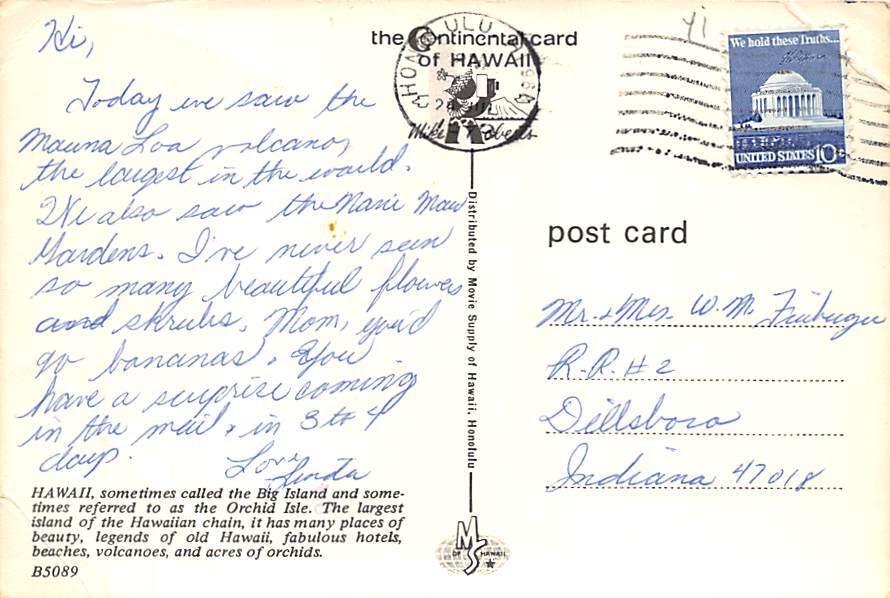 Hi,
Today we saw the
Mauna Loa volcano,
the largest in the world.
We also saw the Nani Mau
Gardens. I've never seen
so many beautiful flowers
and shrubs. Mom, you'd
go bananas. You
have a surprise coming
in the mail, in 3 to 4
days.
Love,
HAWAII, sometimes called the Big Island and some-
times referred to as the Orchid Isle. The largest
island of the Hawaiian chain, it has many places of
beauty, legends of old Hawaii, fabulous hotels,
beaches, volcanoes, and acres of orchids.
B5089
the Continental card
of HAWAII
Mike Roberts
HONOLULU
Distributed by Movie Supply of Hawaii, Honolulu
MS
OF HAWAII
We hold these Truths...
UNITED STATES 10c
post card
Mr. & Mrs. W. M.
R.R. #2
Dillsboro
Indiana 47018